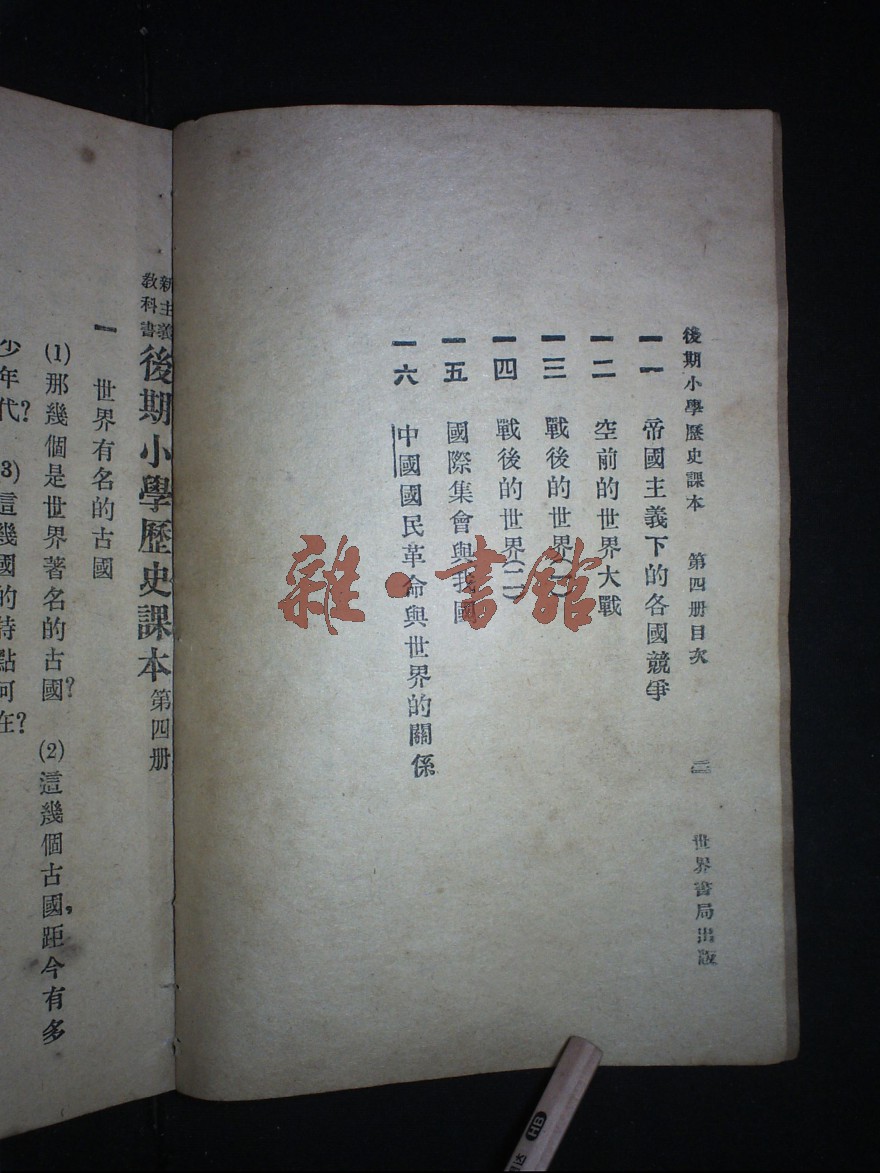 後期小學歷史課本　第四册目次　二　世界書局出版
一一　帝國主義下的各國競爭
一二　空前的世界大戰
一三　戰後的世界(一)
一四　戰後的世界(二)
一五　國際集會與我國
一六　中國國民革命與世界的關係
新主義教科書 後期小學歷史課本 第四册
一　世界有名的古國
(1)那幾個是世界著名的古國？　(2)這幾個古國，距今有多
少年代？　(3)這幾國的特點何在？
雜·書館
HB